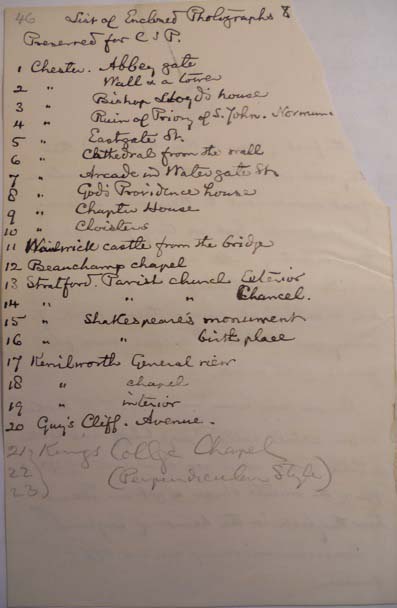 46 List of Enclosed Photographs &
Preserved for C S P.
1 Chester. Abbey gate
2 " Wall & a tower
3 " Bishop Lloyd's house
4 " Ruin of Priory of S. John. Norman.
5 " Eastgate St.
6 " Cathedral from the wall
7 " Arcade in Watergate St.
8 " God's Providence house
9 " Chapter House
10 " Cloisters
11 Warwick castle from the bridge
12 Beauchamp chapel
13 Stratford. Parish church Exterior
14 " " " Chancel.
15 " Shakespeare's monument
16 " " birth place
17 Kenilworth General view
18 " chapel
19 " interior
20 Guy's Cliff. Avenue.
21) Kings College Chapel
22 (Perpendicular Style)
23)